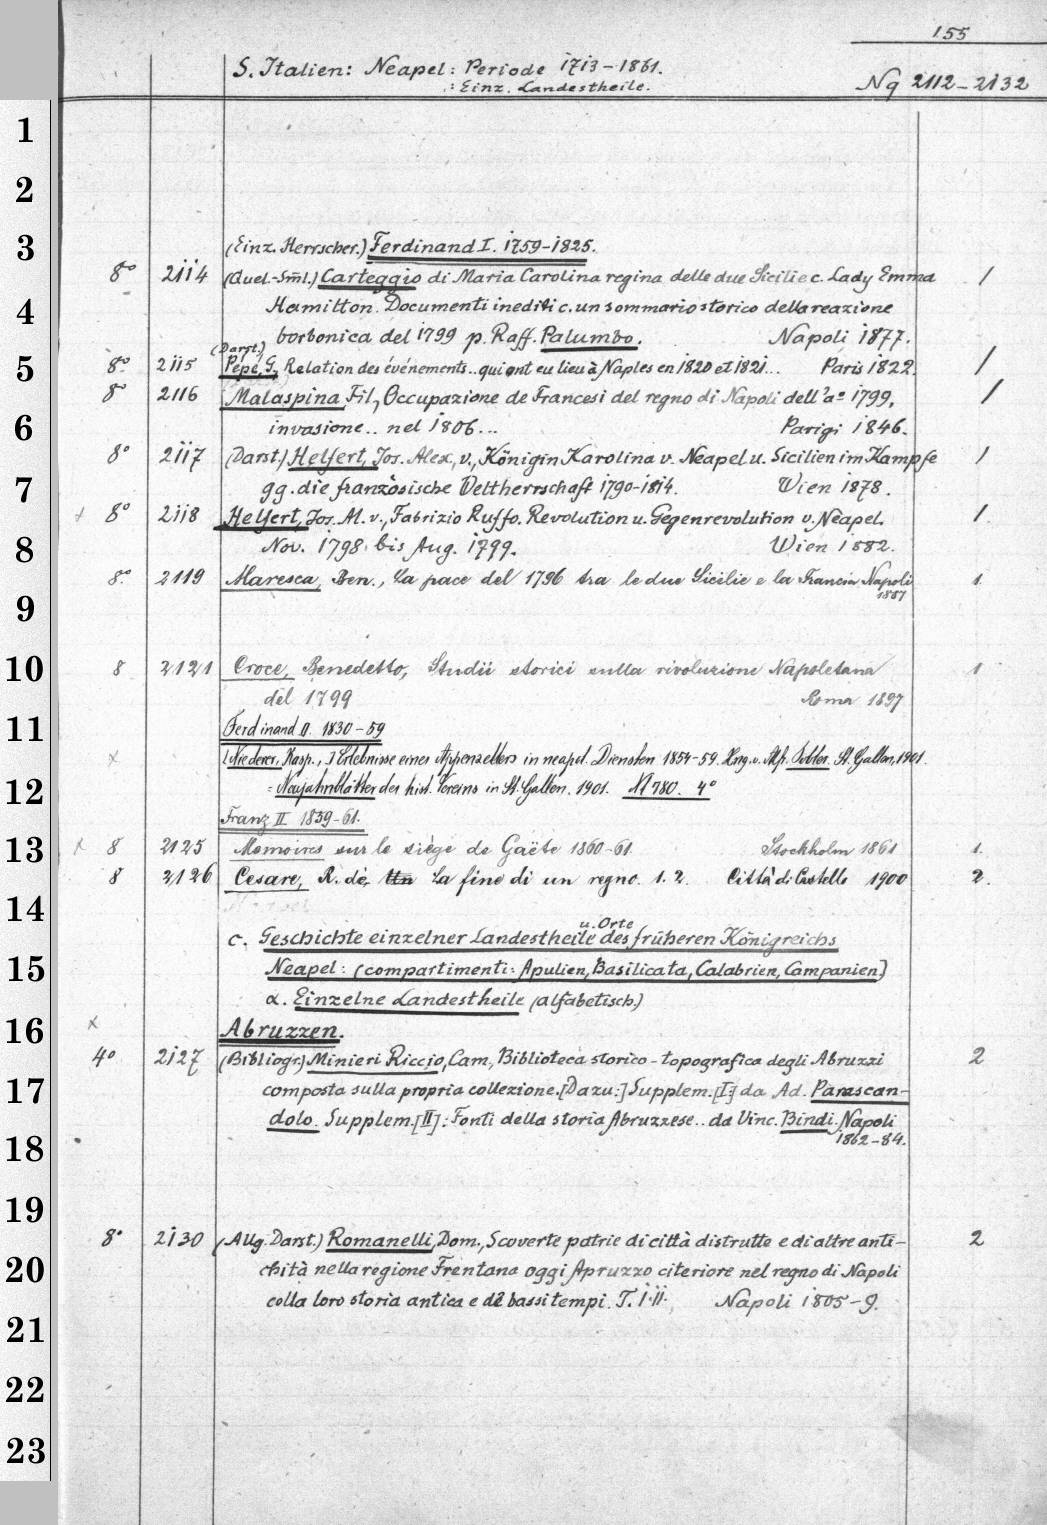 155
S. Italien: Neapel: Periode 1713-1861.
: Einz. Landestheile.
Nq 2112-2132
1
2
3
(Einz. Herrscher.) Ferdinand I. 1759-1825.
8° 2114 (Quel.-Sm̄l.) Carteggio di Maria Carolina regina delle due Sicilie c. Lady Emma 1
4
Hamilton. Documenti inediti c. un sommario storico della reazione
borbonica del 1799 p. Raff. Palumbo. Napoli 1877.
(Darst.)
5
8° 2115 Pepe, G., Relation des événements.. qui ont eu lieu à Naples en 1820 et 1821... Paris 1822. 1
8° 2116 Malaspina, Fil., Occupazione de Francesi del regno di Napoli dell'a° 1799, 1
6
invasione.. nel 1806... Parigi 1846.
8° 2117 (Darst.) Helfert, Jos. Alex, v., Königin Karolina v. Neapel u. Sicilien im Kampfe 1
7
gg. die französische Weltherrschaft 1790-1814. Wien 1878.
x 8° 2118 Helfert, Jos. Al. v., Fabrizio Ruffo. Revolution u. Gegenrevolution v. Neapel. 1.
8
Nov. 1798 bis Aug. 1799. Wien 1882.
8° 2119 Maresca, Ben., La pace del 1796 tra le due Sicilie e la Francia Napoli 1.
1887
9
10
8 2121 Croce, Benedetto, Studii storici sulla rivoluzione Napoletana 1
del 1799 Roma 1897
11
Ferdinand II. 1830-59
x [Niederer, Kasp.,] Erlebnisse eines Appenzellers in neapol. Diensten 1854-59. Hrsg. v. Alf. Tobler. St. Gallen, 1901.
12
= Neujahrsblätter des hist. Vereins in St. Gallen. 1901. Nf 780. 4°
Franz II 1859-61.
13
x 8 2125 Memoires sur le siège de Gaëte 1860-61. Stockholm 1861 1.
8 2126 Cesare, R. de, La fine di un regno. 1. 2. Città di Castello 1900 2.
14
u. Orte
c. Geschichte einzelner Landestheile des früheren Königreichs
15
Neapel: (compartimenti: Apulien, Basilicata, Calabrien, Campanien)
α. Einzelne Landestheile (alfabetisch.)
16
x Abruzzen.
4° 2127 (Bibliogr.) Minieri Riccio, Cam., Biblioteca storico-topografica degli Abruzzi 2
17
composta sulla propria collezione. [Dazu:] Supplem. [I:] da Ad. Parascan-
dolo. Supplem. [II]: Fonti della storia Abruzzese.. da Vinc. Bindi. Napoli
18
1862-84.
19
8° 2130 (Allg. Darst.) Romanelli, Dom., Scoverte patrie di città distrutte e di altre anti- 2
20
chità nella regione Frentana oggi Apruzzo citeriore nel regno di Napoli
colla loro storia antica e de bassi tempi. T. I. II. Napoli 1805-9.
21
22
23